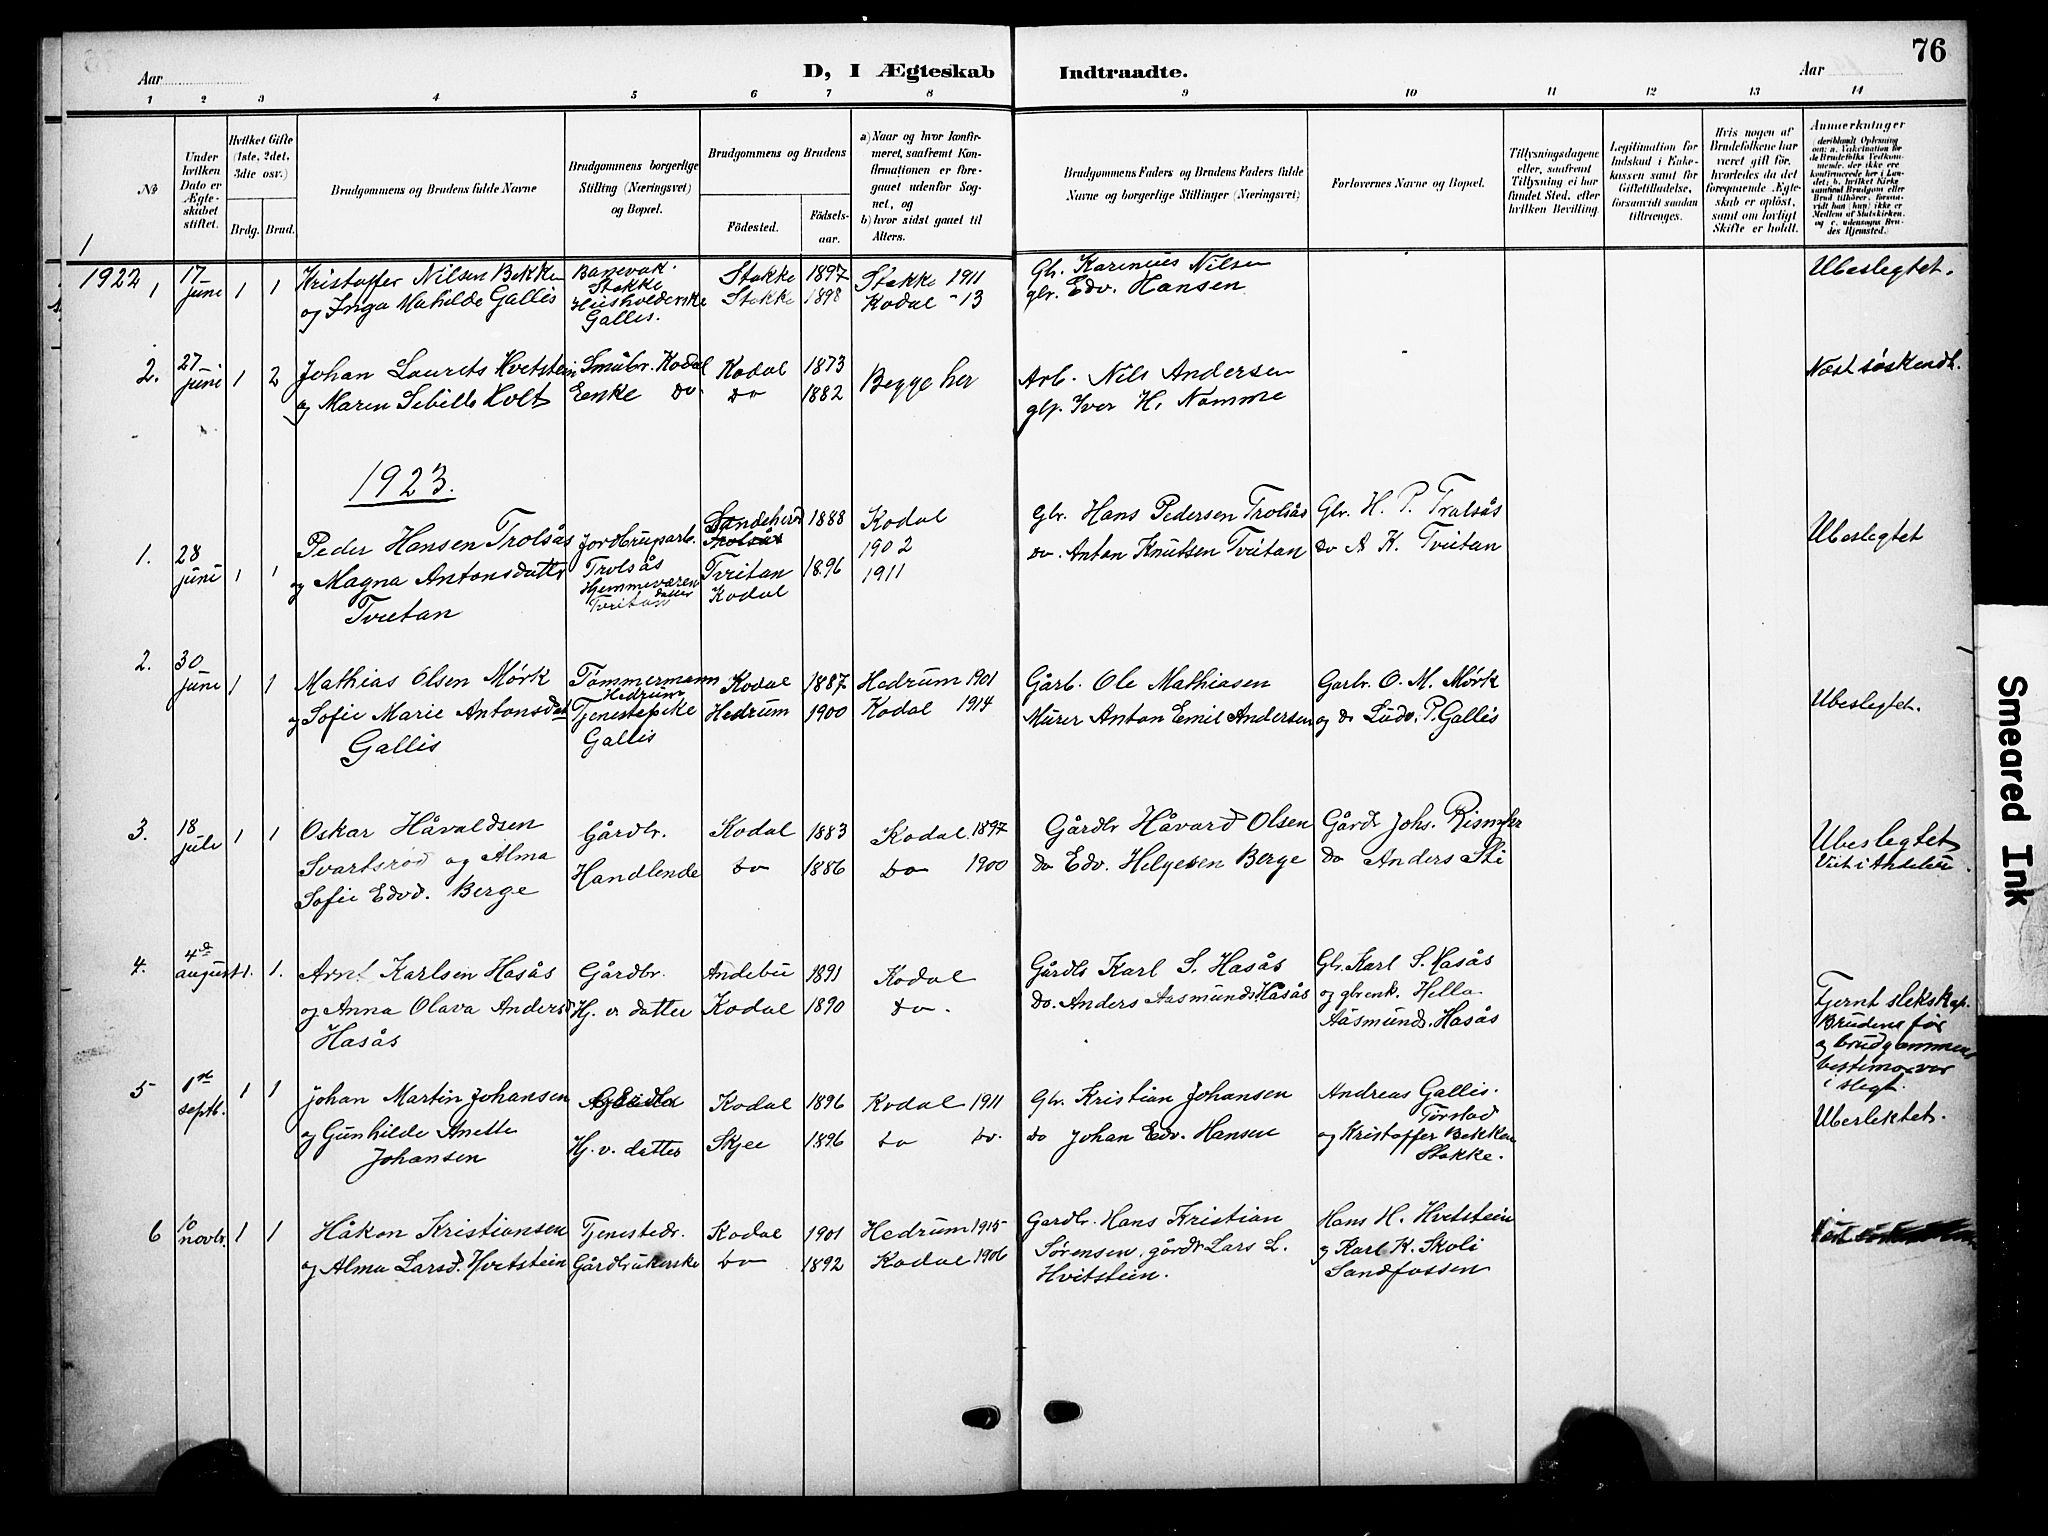 76
Aar
D, I Ægteskab
Indtraadte.
Aar
1 2 3 4 5 6 7 8 9 10 11 12 13 14
No
Under hvilken Dato er Ægteskabet stiftet.
Hvilket Gifte (1ste, 2det, 3die osv.)
Brdg. Brud.
Brudgommens og Brudens fulde Navne
Brudgommens borgerlige Stilling (Næringsvei) og Bopæl.
Brudgommens og Brudens
Födested.
Födsels-aar.
a) Naar og hvor konfirmeret, saafremt Konfirmationen er foregaaet udenfor Sognet, og
b) hvor sidst gaaet til Alters.
Brudgommens Faders og Brudens Faders fulde Navne og borgerlige Stillinger (Næringsvei)
Forlovernes Navne og Bopæl.
Tillysningsdagene eller, saafremt Tillysning ei har fundet Sted, efter hvilken Bevilling.
Legitimation for Indskud i Enkekassen samt for Giftetilladelse, forsaavidt saadan tiltrænges.
Hvis nogen af Brudefolkene har været gift för, hvorledes da det foregaaende Ægteskab er oplöst, samt om lovligt Skifte er holdt.
Anmerkninger
(deriblandt Oplysning om: a. Vakcination for de Brudefolks Vedkommende, der ikke ere konfirmerede her i Landet; b. hvilket Kirkesamfund Brudgom eller Brud tilhörer, forsaavidt han (hun) ikke er Medlem af Statskirken, og c. udensogns Brudes Hjemsted.)
1922
1 17 juni 1 1 Kristoffer Nilsen Bekke Banevok. Stokke Stokke 1897 Stokke 1911 Gbr. Karenius Nilsen Ubeslegtet.
og Inga Mathilde Gallis Husholderske Gallis. Stokke 1898 Kodal -13 gbr. Edv. Hansen
2. 27 juni 1 2 Johan Laurits Hvitstein Småbr. Kodal Kodal 1873 Begge her Arb. Nils Andersen Næst søskendb.
og Maren Sibille Holt Enke do do 1882 gbr. Iver H. Nomme
1923.
1. 28 juni 1 1 Peder Hansen Trolsås Jordbruparb. Trolsås Sandeherd 1888 Kodal 1902 Gbr. Hans Pedersen Trolsås Gbr. H. P. Trolsås Ubeslegtet
og Magna Antonsdatter Tveitan Hjemmeværen datter Tveitan Tveitan Kodal 1896 1911 do. Anton Knutsen Tveitan do A K. Tveitan
2. 30 juni 1 1 Mathias Olsen Mørk Tømmermann Hedrum Kodal 1887 Hedrum 1901 Gårb. Ole Mathiasen Garbr. O. M. Mørk Ubeslegtet.
og Sofie Marie Antonsdat Gallis Tjenestepike Gallis Hedrum 1900 Kodal 1914 Murer Anton Emil Andersen og do Ludv. P. Gallis
3. 18 juli 1 1 Oskar Håvaldsen Gårdbr. Kodal 1883 Kodal 1897 Gårdbr Håvard Olsen Gårdr Johs. Ubeslegtet
Svartsrød og Alma Sofie Edvd. Berge Handlende do 1886 do 1900 do Edv. Helgesen Berge do Anders Sti Viet i Andebu.
4. 4de august 1. 1. Arnt Karlsen Hasås Gårdbr. Andebu 1891 Kodal Gårdb Karl S. Hasås Gbr. Karl S. Hasås Fjernt slektskap.
og Anna Olava Andersd Hasås Hj. v datter Kodal 1890 do. do. Anders Aasmunds. Hasås og gbrenk. Hella Aasmunds. Hasås Brudens far og brudgommens bestimorvar i slegt.
5 1st septb. 1 1 Johan Martin Johansen Kodal 1896 Kodal 1911 Gbr. Kristian Johansen Andreas Gallis. Torstad Uberlektet.
og Gunhilde Anette Johansen Hj. v. datter Skjee 1896 do do. do Johan Edv. Hansen og Kristoffer Bekken Stokke.
6 10 novbr. 1 1 Håkon Kristiansen Tjenestedr. Kodal 1901 Hedrum 1915 Gardbr. Hans Kristian Sørensen, gårdbr Lars L. Hvitstein. Hans H. Hvitstein
og Alma Larsd. Hvitstein Gårdbrukerske do 1892 Kodal 1906 og Karl K. Skoli Sandfossen
Smeared Ink